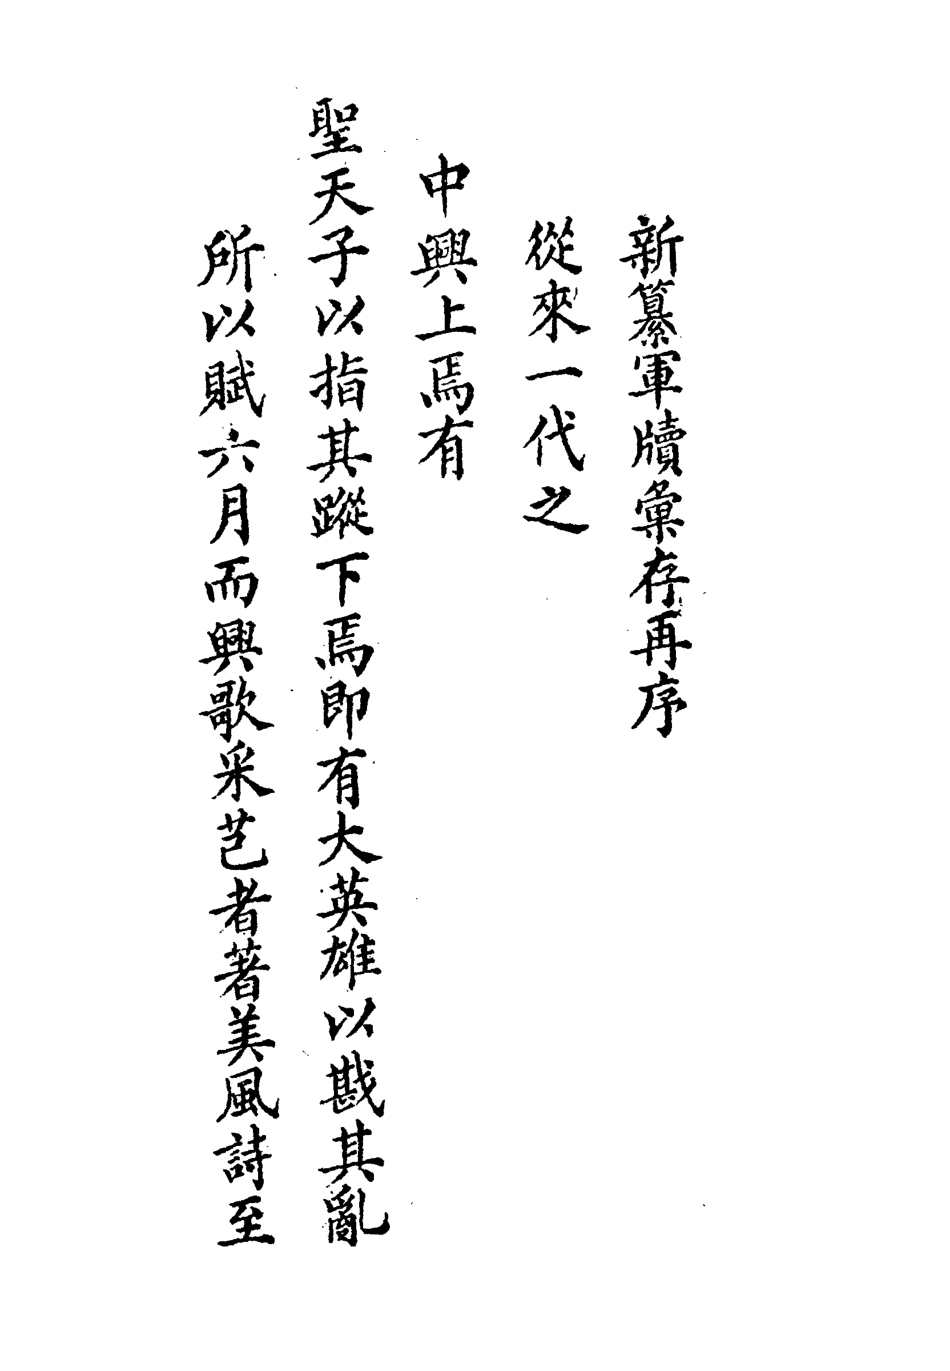 新纂軍牘彙存再序
從來一代之
中興上焉有
聖天子以指其蹤下焉即有大英雄以戡其亂
所以賦六月而興歌采芑者著美風詩至